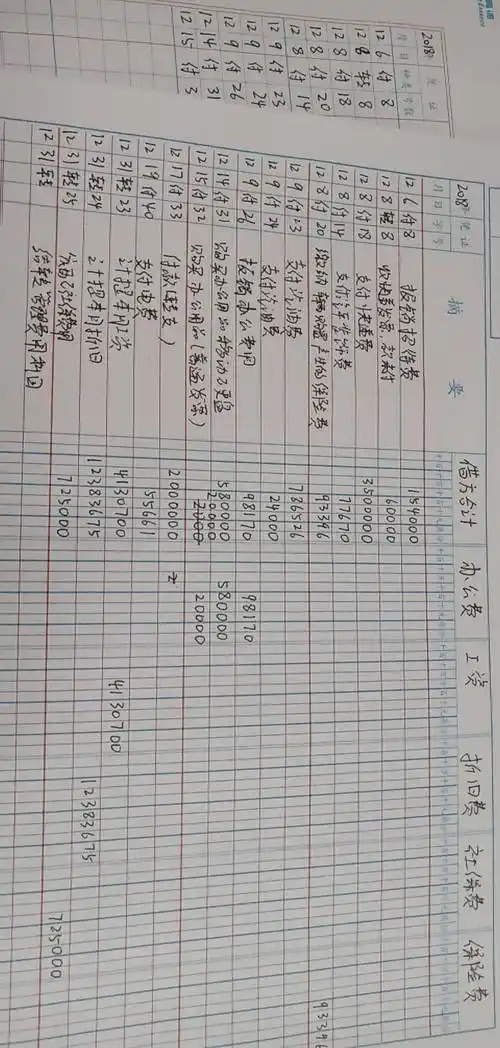 2018年 凭证
月 日 种类 号数
12 6 付 8
12 8 转 8
12 8 付 18
12 8 付 20
12 8 付 14
12 9 付 23
12 9 付 24
12 9 付 26
12 14 付 31
12 15 付 3
2018年 凭证 摘 要 借方合计 办公费 工资 折旧费 社保费 保险费
月 日 字 号
12 6 付 8 报销招待费 154000
12 8 转 8 60000
12 8 付 18 支付快递费 3500000
12 8 付 14 77670
12 8 付 20 93396 93396
12 9 付 23 支付汽油费 786526
12 9 付 24 支付汽油费 24000
12 9 付 26 报销办公费用 98170 98170
12 14 付 31 购买办公用品 580000 580000
12 15 付 32 购买办公用品(普通发票) 20000 20000
12 17 付 33 2000000
12 19 付 40 支付电费 55661
12 31 转 23 计提本月工资 4130700 4130700
12 31 转 24 计提本月折旧 12383675 12383675
12 31 转 25 725000 725000
12 31 转 结转管理费用